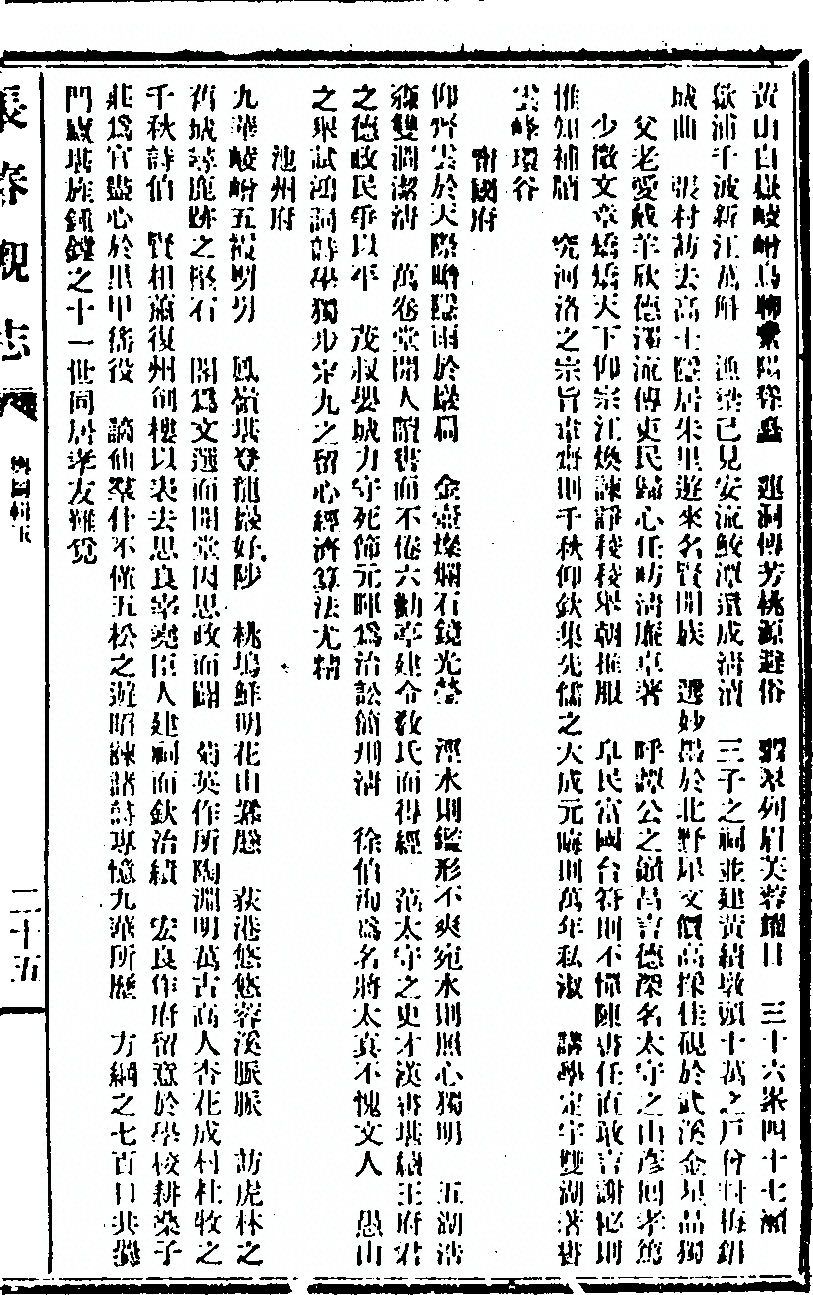 黃山白嶽峻嶒烏聊紫陽 蓮洞傳芳桃源避俗 列眉芙蓉 目 三十六峯四十七
歙浦千波新江萬 漁梁已見安流鮫潭還成清 三子之祠並建黃績墩頭十萬之戶 梅鋗
成曲 張村訪去高士隱居朱里遊來名賢開族 選妙墨於北野 文價高採佳硯於武溪金星品獨
父老愛戴羊欣德濁流傳吏民歸心任昉清廉卓著 呼譚公之嶺昌言德深名太守之山彥回孝篤
少微文章 天下仰宗江煥諫諍 舉朝推服 阜民富國台符則不憚陳書任直敢言謝 則
惟知補牘 究河洛之宗旨 齋則千秋仰欽集先儒之大成元晦則萬年私淑 講學定宇雙湖著書
雲峰環谷
甯國府
仰齊雲於天際瞻隱雨於嚴扃 金壺燦爛石鏡光瑩 涇水則鑑形不爽宛水則照心獨明 五湖浩
雙澗潔清 萬卷堂開人讀書而不倦六勤亭建令教民而得經 范太守之吏才漢書堪續王府君
之德政民乖以平 茂叔嬰城力守死節元暉為治訟簡刑清 徐伯海為名將太真不愧文人 愚山
之舉試鴻詞詩學獨步定九之留心經濟算法尤精
池州府
九華峻嶒五 明秀 鳳嶺堪登龍 好陟 桃塢鮮明花山 荻港悠悠蓉溪脈脈 訪虎林之
舊城尋鹿跡之 石 閣為文選而開堂因思政而闢 菊英作所陶淵明萬古高人杏花成村杜牧之
千秋詩伯 賢相蕭復州 樓以 去思良宰 臣人建祠而欽治績 宏良作府留意於學校耕桑子
莊為官盡心於里甲徭役 謫仙 什不僅五松之遊昭諫諸詩專憶九華所歷 方綱之七百口共
門 堪旌鍾 之十一世同居孝友難 
長春觀志
二十五